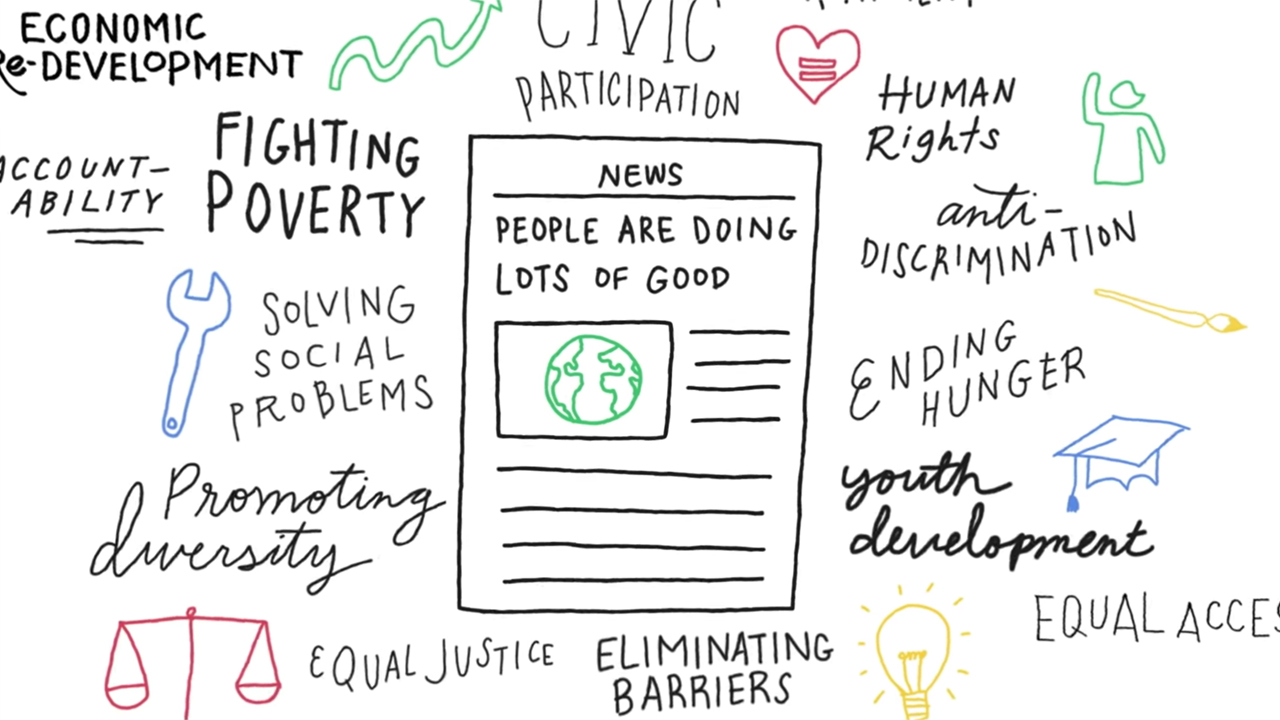 ECONOMIC
Re-DEVELOPMENT
CIVIC
PARTICIPATION
HUMAN
Rights
FIGHTING
POVERTY
ACCOUNT-
ABILITY
NEWS
PEOPLE ARE DOING
LOTS OF GOOD
anti-
DISCRIMINATION
SOLVING
SOCIAL
PROBLEMS
ENDING
HUNGER
Promoting
diversity
youth
development
EQUAL JUSTICE
ELIMINATING
BARRIERS
EQUAL